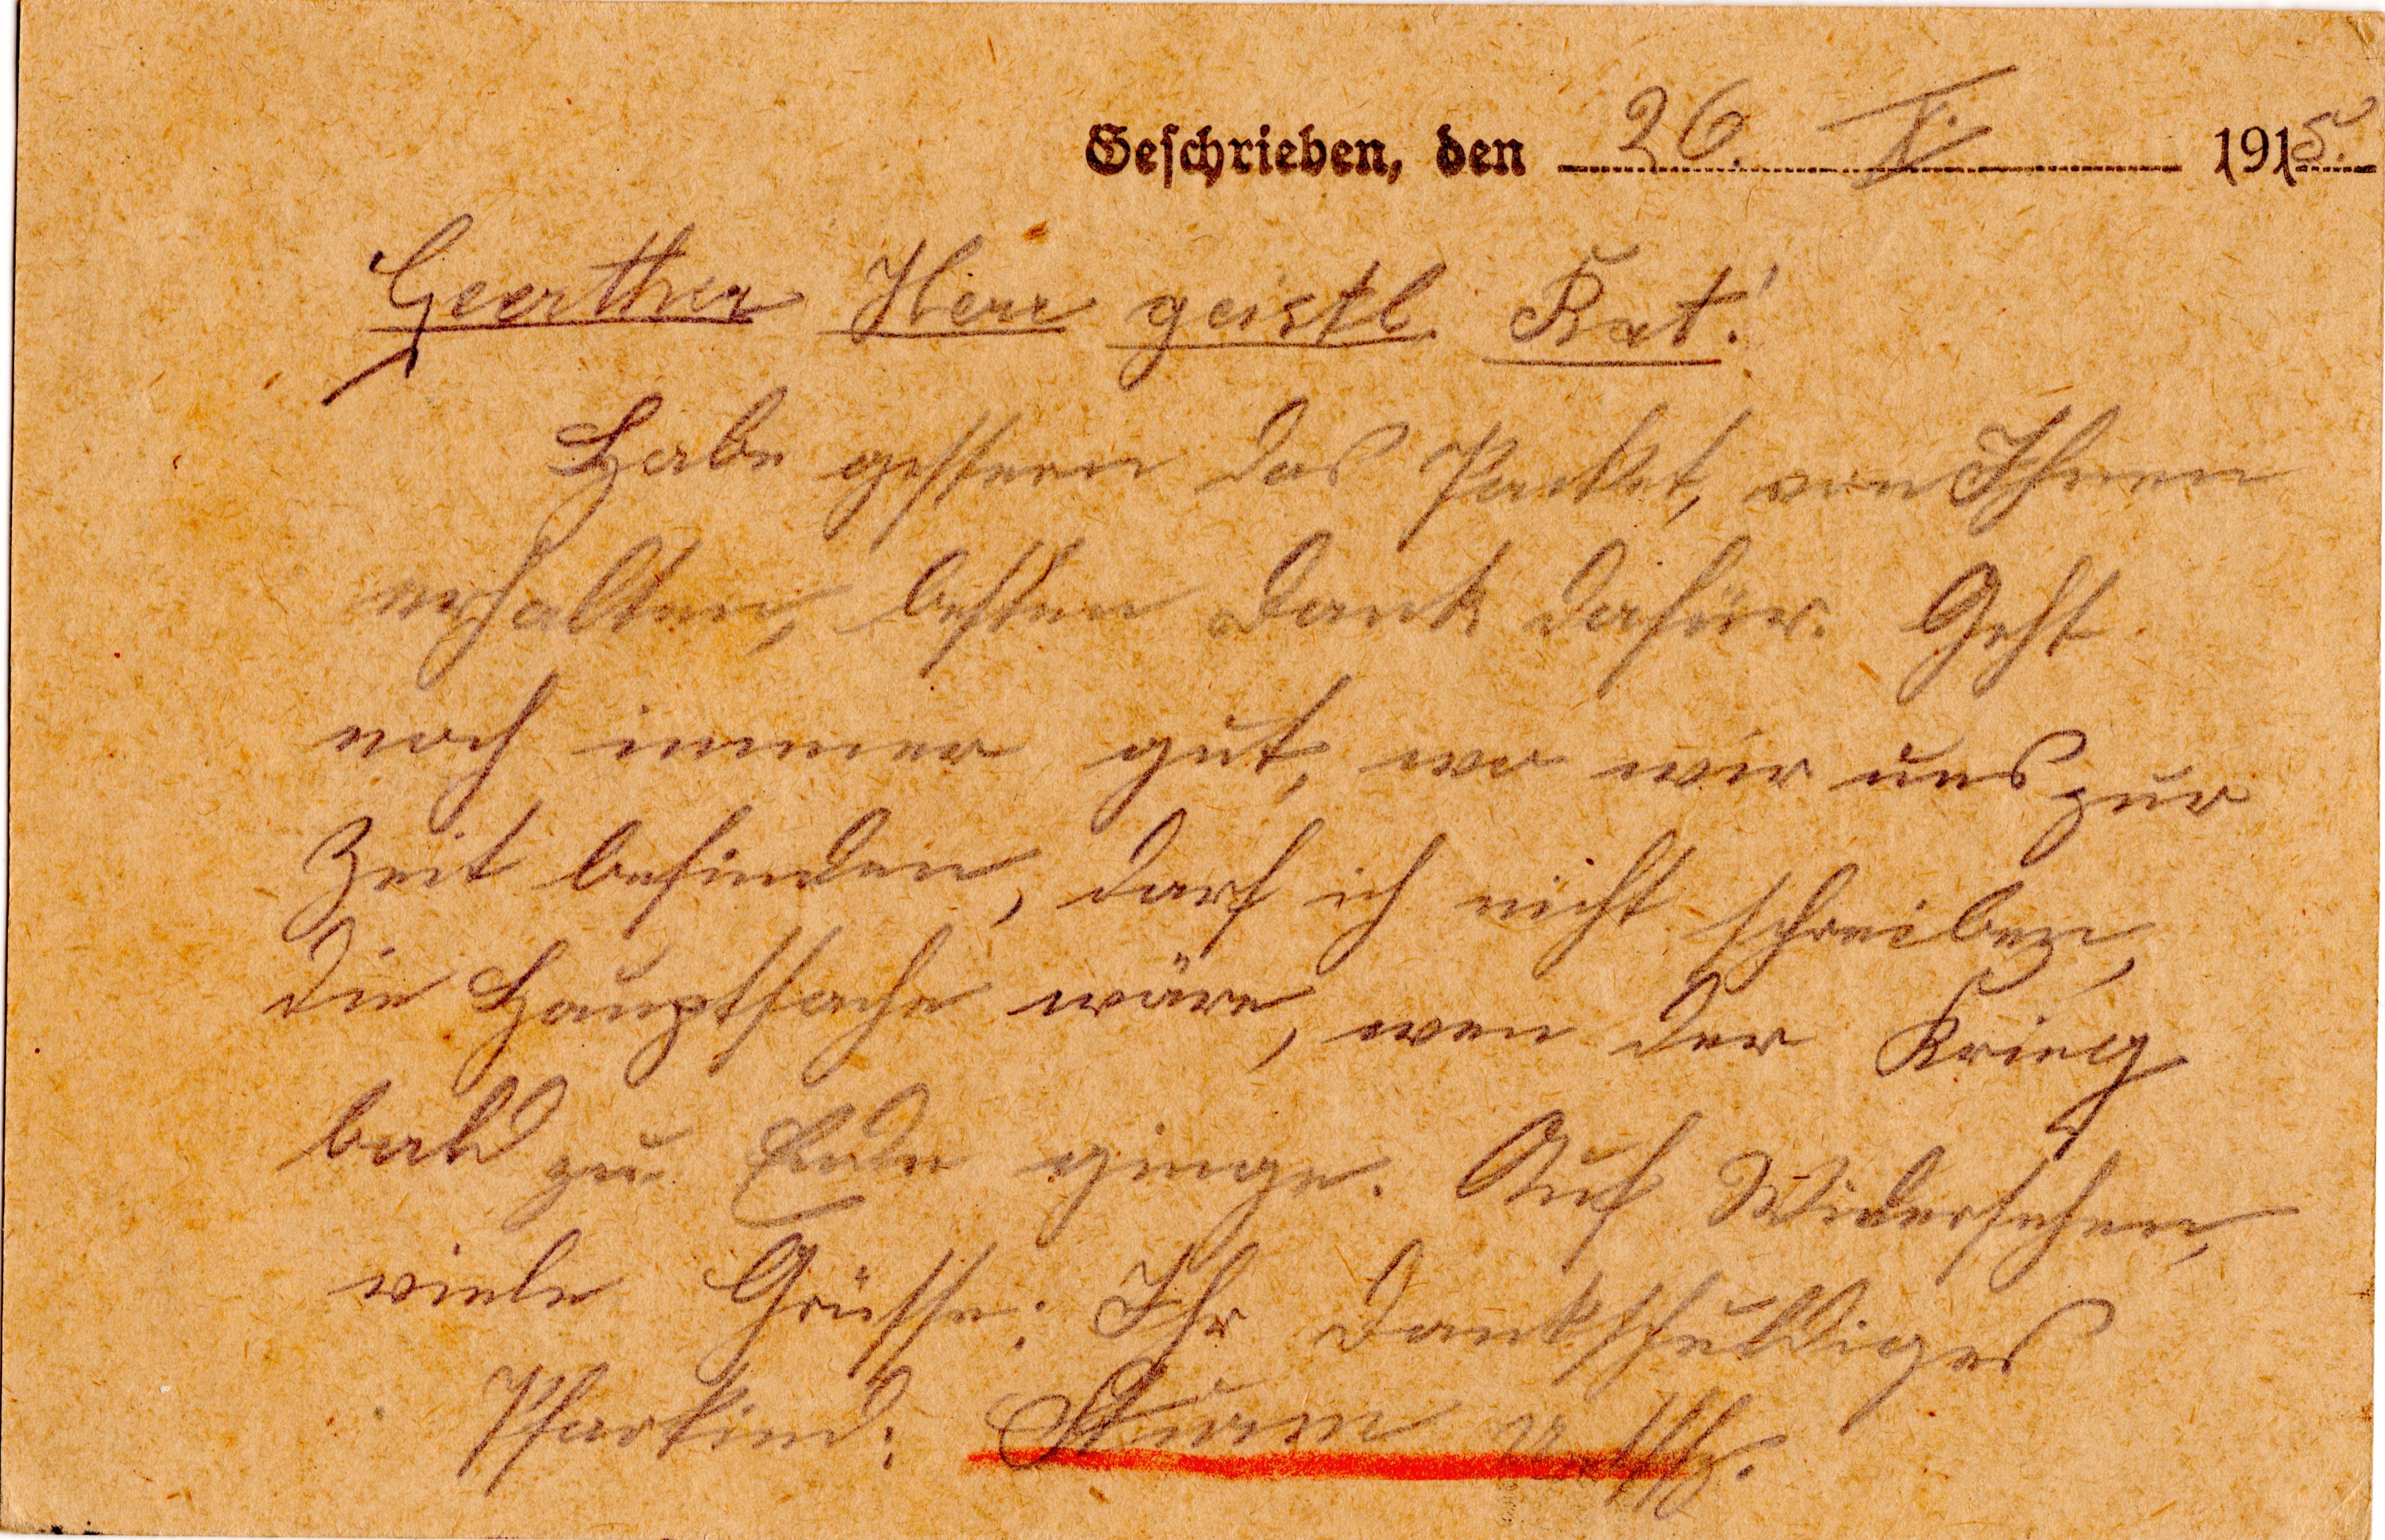 Geschrieben, den 26. X. 1915.
Geerther Herr geistl. Rat!
Habe gestern das Packet, von Ihnen
erhalten, besten Dank dafür. Geht
noch immer gut, wo wir uns zur
Zeit befinden, darf ich nicht schreiben,
die Hauptsache wäre, wen der Krieg
bald zu Ende ginge. Auf Widersehen,
viele Grüsse: Ihr dankschuldiges
Pfarkind: Sturm Uffz.